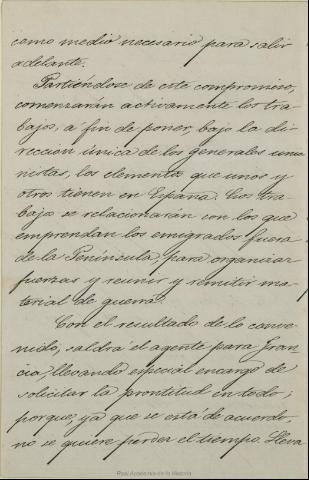 como medio necesario para salir
adelante.
Partiéndose de este compromiso,
comenzarán activamente los tra-
bajos, a fin de poner, bajo la di-
reccion única de los generales unio
nistas, los elementos que unos y
otros tienen en España. Los tra-
bajos se relacionarán con los que
emprendan los emigrados fuera
de la Península, para organizar
fuerzas y reunir y remitir ma-
terial de guerra.
Con el resultado de lo conve-
nido, saldrá el agente para Fran-
cia, llevando especial encargo de
solicitar la prontitud en todo;
porque, ya que se está de acuerdo,
no se quiere perder el tiempo. Lleva
Real Academia de la Historia